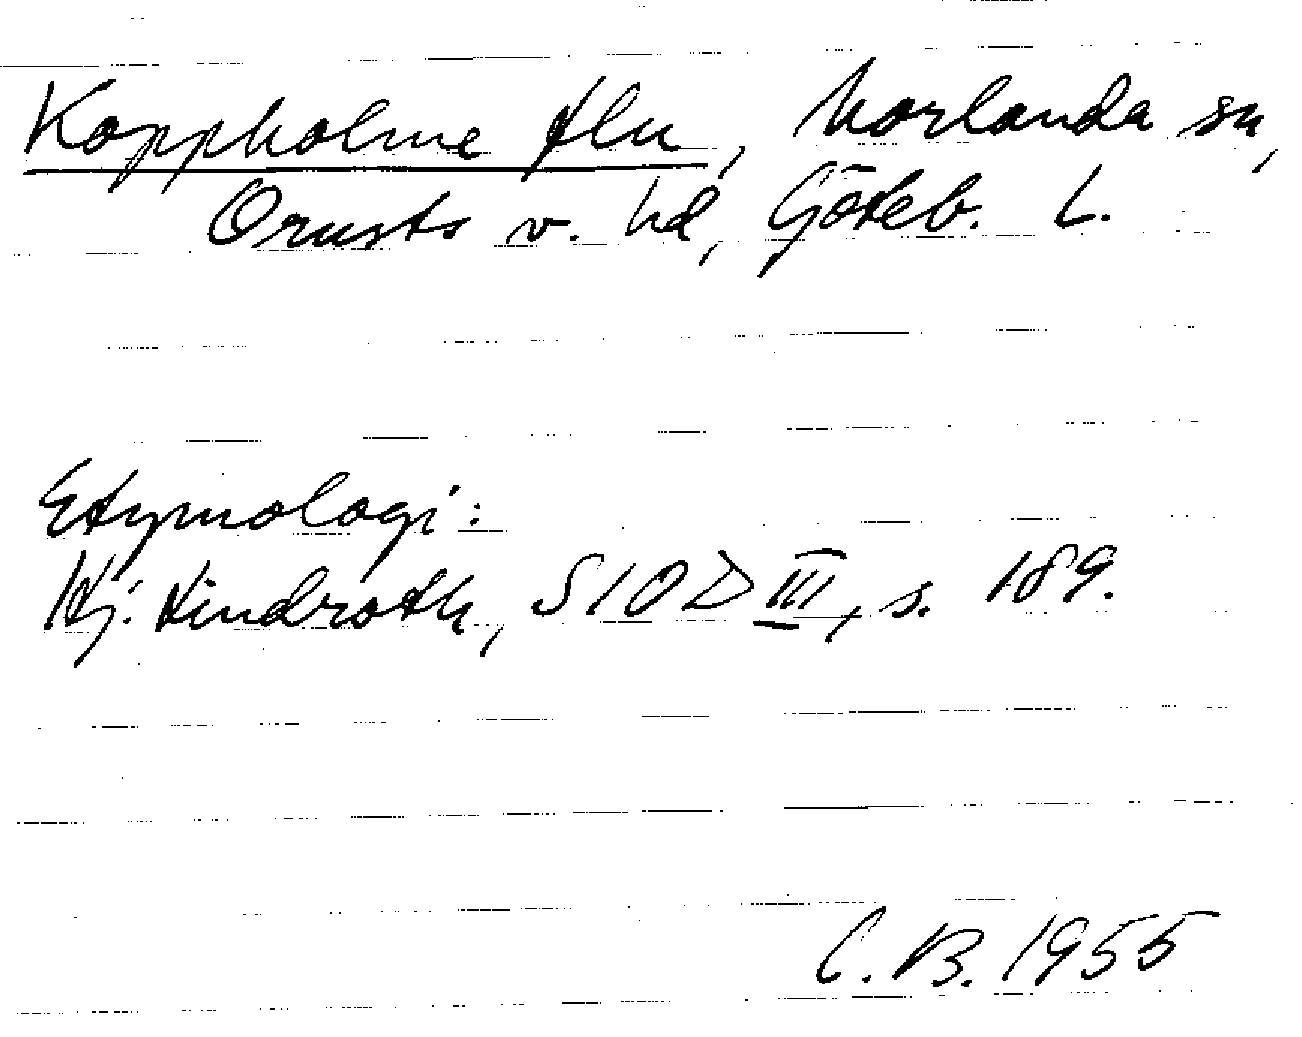 Koppholme flu, Morlanda sn,
Orusts v. hd, Göteb. L.
Etymologi:
Hj. Lindroth, SIOD III, s. 189.
C. B. 1955